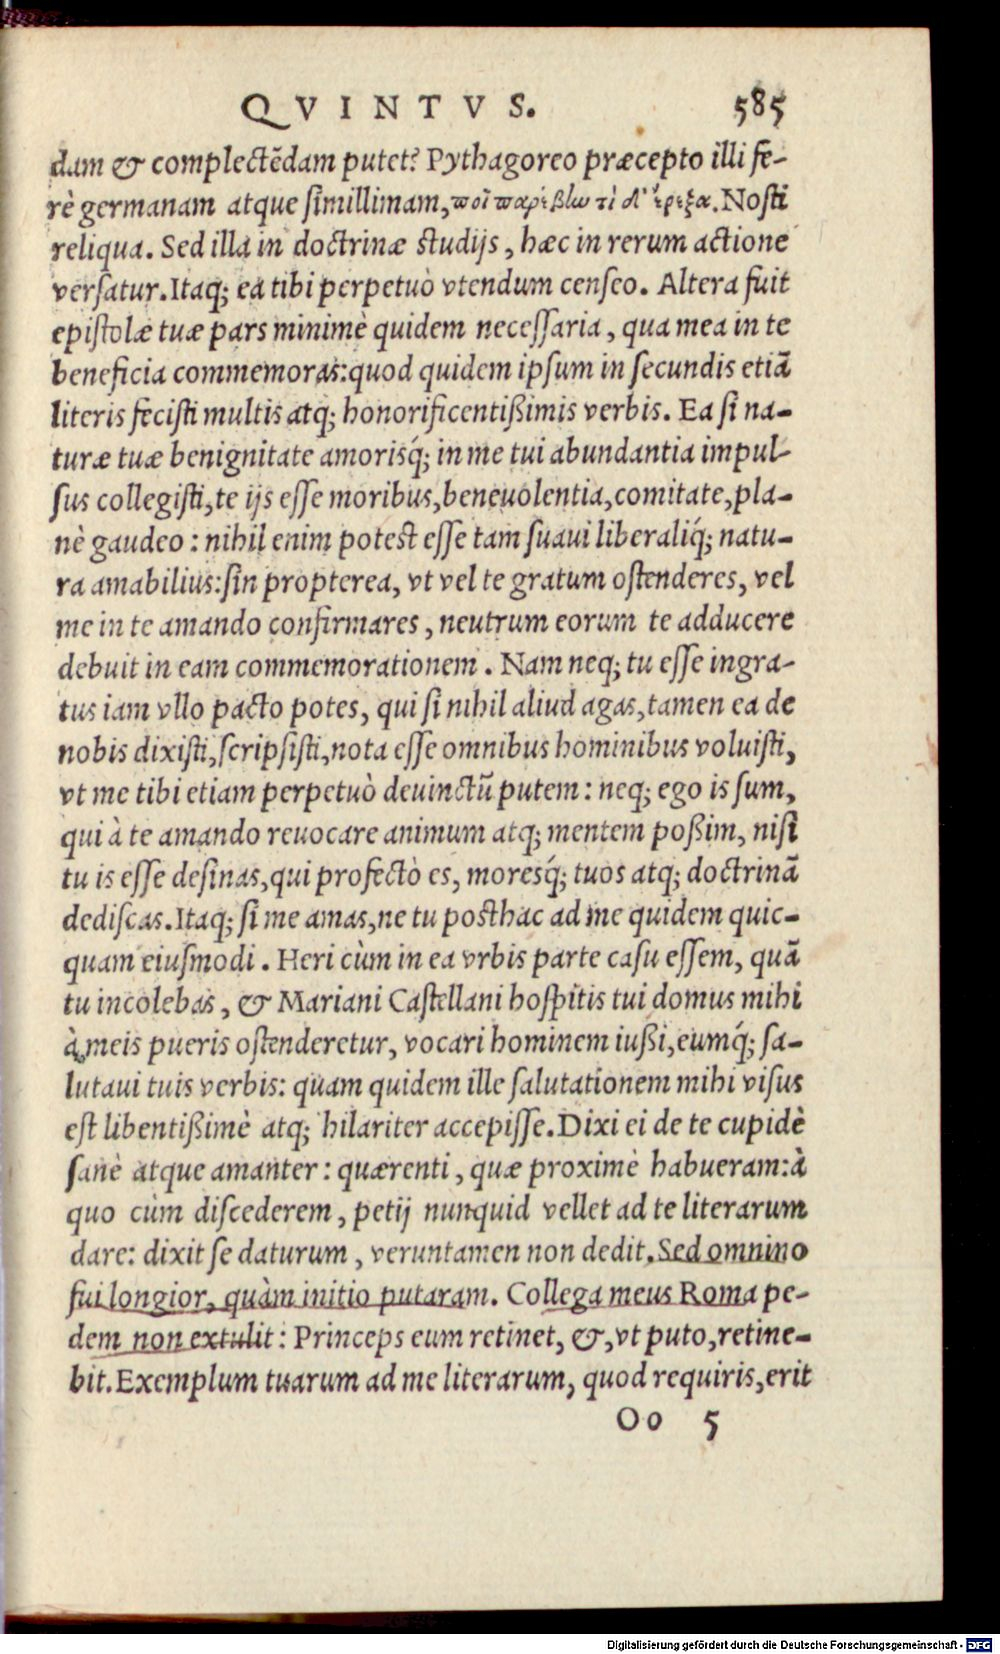 QVINTVS. 585
dam & complectēdam putet? Pythagoreo præcepto illi fe-
rè germanam atque simillimam, ποῖ παρέβλω τί δ' ἔρεξα. Nosti
reliqua. Sed illa in doctrinæ studijs, hæc in rerum actione
versatur. Itaq; ea tibi perpetuò vtendum censeo. Altera fuit
epistolæ tuæ pars minimè quidem necessaria, qua mea in te
beneficia commemoras: quod quidem ipsum in secundis etiā
literis fecisti multis atq; honorificentißimis verbis. Ea si na-
turæ tuæ benignitate amorisq́; in me tui abundantia impul-
sus collegisti, te ijs esse moribus, beneuolentia, comitate, pla-
nè gaudeo: nihil enim potest esse tam suaui liberaliq́; natu-
ra amabilius: sin propterea, vt vel te gratum ostenderes, vel
me in te amando confirmares, neutrum eorum te adducere
debuit in eam commemorationem. Nam neq; tu esse ingra-
tus iam vllo pacto potes, qui si nihil aliud agas, tamen ea de
nobis dixisti, scripsisti, nota esse omnibus hominibus voluisti,
vt me tibi etiam perpetuò deuinctū putem: neq; ego is sum,
qui à te amando reuocare animum atq; mentem poßim, nisi
tu is esse desinas, qui profectò es, moresq́; tuos atq; doctrinā
dediscas. Itaq; si me amas, ne tu posthac ad me quidem quic-
quam eiusmodi. Heri cùm in ea vrbis parte casu essem, quā
tu incolebas, & Mariani Castellani hospitis tui domus mihi
à meis pueris ostenderetur, vocari hominem iußi, eumq́; sa-
lutaui tuis verbis: quam quidem ille salutationem mihi visus
est libentißimè atq; hilariter accepisse. Dixi ei de te cupidè
sanè atque amanter: quærenti, quæ proximè habueram: à
quo cùm discederem, petij nunquid vellet ad te literarum
dare: dixit se daturum, veruntamen non dedit. Sed omnino
fui longior, quàm initio putaram. Collega meus Roma pe-
dem non extulit: Princeps eum retinet, &, vt puto, retine-
bit. Exemplum tuarum ad me literarum, quod requiris, erit
Oo 5
Digitalisierung gefördert durch die Deutsche Forschungsgemeinschaft - DFG